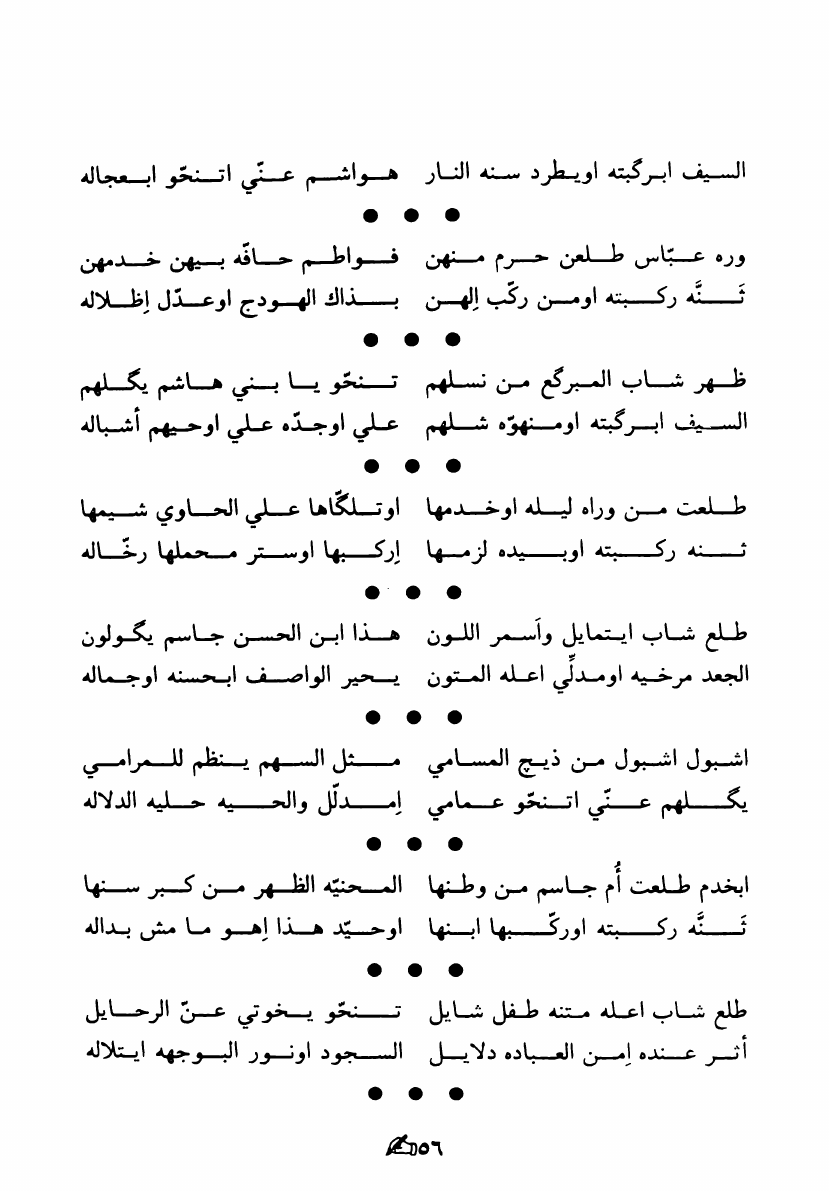 السيف ابرگبته اويطرد سنه النار هواشم عنّي اتنحّو ابعجاله
● ● ●
وره عبّاس طلعن حرم منهن فواطم حافّه بيهن خدمهن
ثَنَّه ركبته اومن ركّب إلهن بذاك الهودج اوعدّل إظلاله
● ● ●
ظهر شاب المبرگع من نسلهم تنحّو يا بني هاشم يگلهم
السيف ابرگبته اومنهوّه شلهم علي اوجدّه علي اوحيهم أشباله
● ● ●
طلعت من وراه ليله اوخدمها اوتلگّاها علي الحاوي شيمها
ثنه ركبته اوبيده لزمها إركبها اوستر محملها رخّاله
● ● ●
طلع شاب ايتمايل وأسمر اللون هذا ابن الحسن جاسم يگولون
الجعد مرخيه اومدلّي اعله المتون يحير الواصف ابحسنه اوجماله
● ● ●
اشبول اشبول من ذيچ المسامي مثل السهم ينظم للمرامي
يگلهم عنّي اتنحّو عمامي إمدلّل والحيه حليه الدلاله
● ● ●
ابخدم طلعت أُم جاسم من وطنها المحنيّه الظهر من كبر سنها
ثَنَّه ركبته اوركّبها ابنها اوحيّد هذا إهو ما مش بداله
● ● ●
طلع شاب اعله متنه طفل شايل تنحّو يخوتي عنّ الرحايل
أثر عنده إمن العباده دلايل السجود اونور البوجهه ايتلاله
● ● ●
٥٦